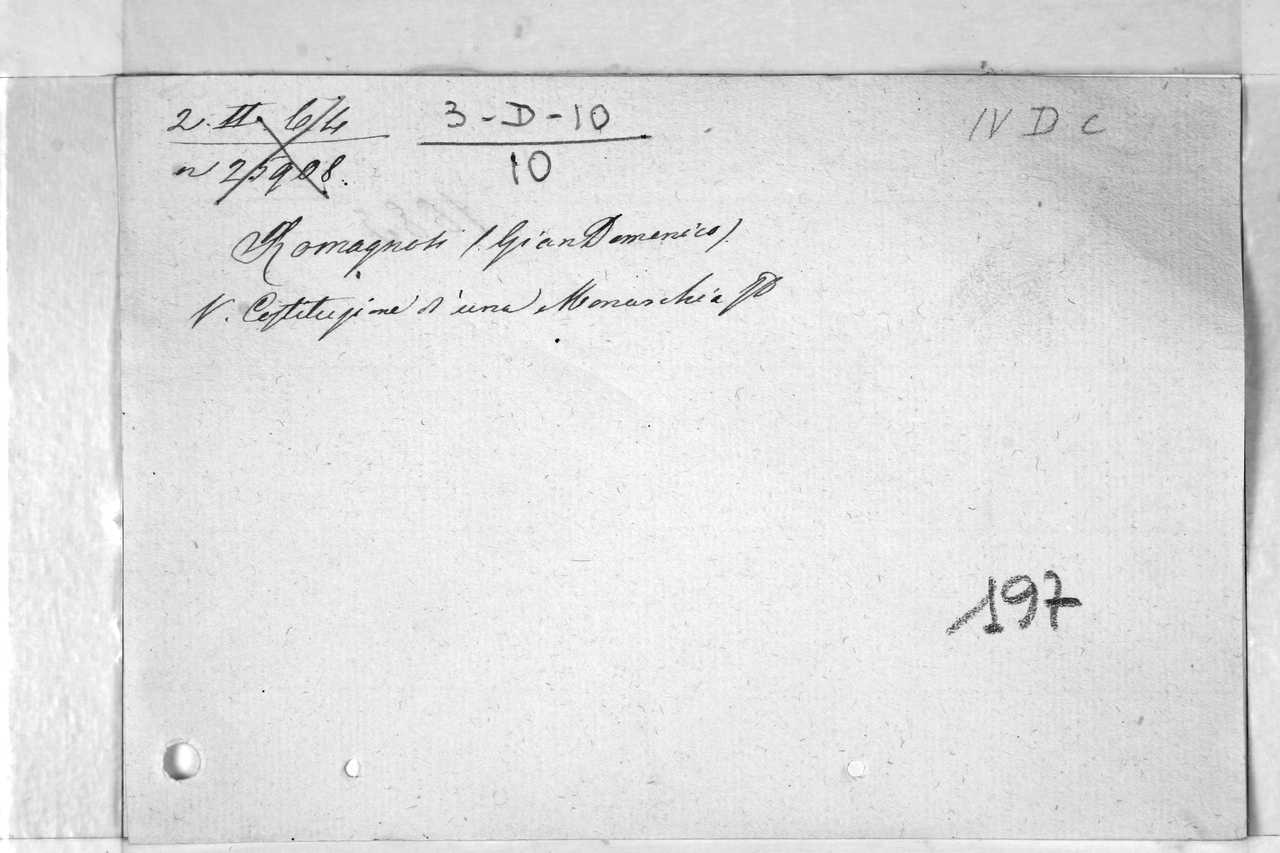 2. II. 6/4
n 25908.
3-D-10
10
IV D c
Romagnosi (Gian Domenico).
V. Costituzione d'una Monarchia
197